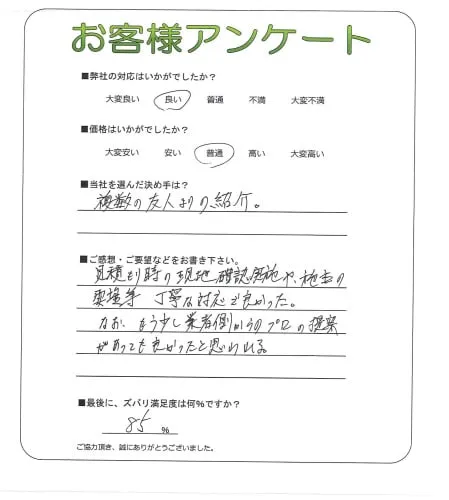 お客様アンケート
■弊社の対応はいかがでしたか?
大変良い 良い 普通 不満 大変不満
■価格はいかがでしたか?
大変安い 安い 普通 高い 大変高い
■当社を選んだ決め手は?
複数の友人よりの紹介。
■ご感想・ご要望などをお書き下さい。
見積もり時の現地確認実施や、施主の
要望等 丁寧な対応で良かった。
なお、もう少し業者側からのプロの提案
があっても良かったと思われる。
■最後に、ズバリ満足度は何%ですか?
85 %
ご協力頂き、誠にありがとうございました。